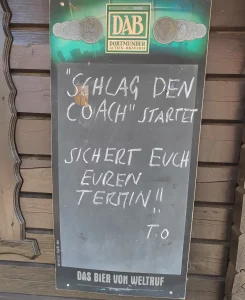 DAB
DORTMUNDER
ACTIEN-BRAUEREI
"SCHLAG DEN
COACH" STARTET
SICHERT EUCH
EUREN
TERMIN"
T.O
DAS BIER VON WELTRUF